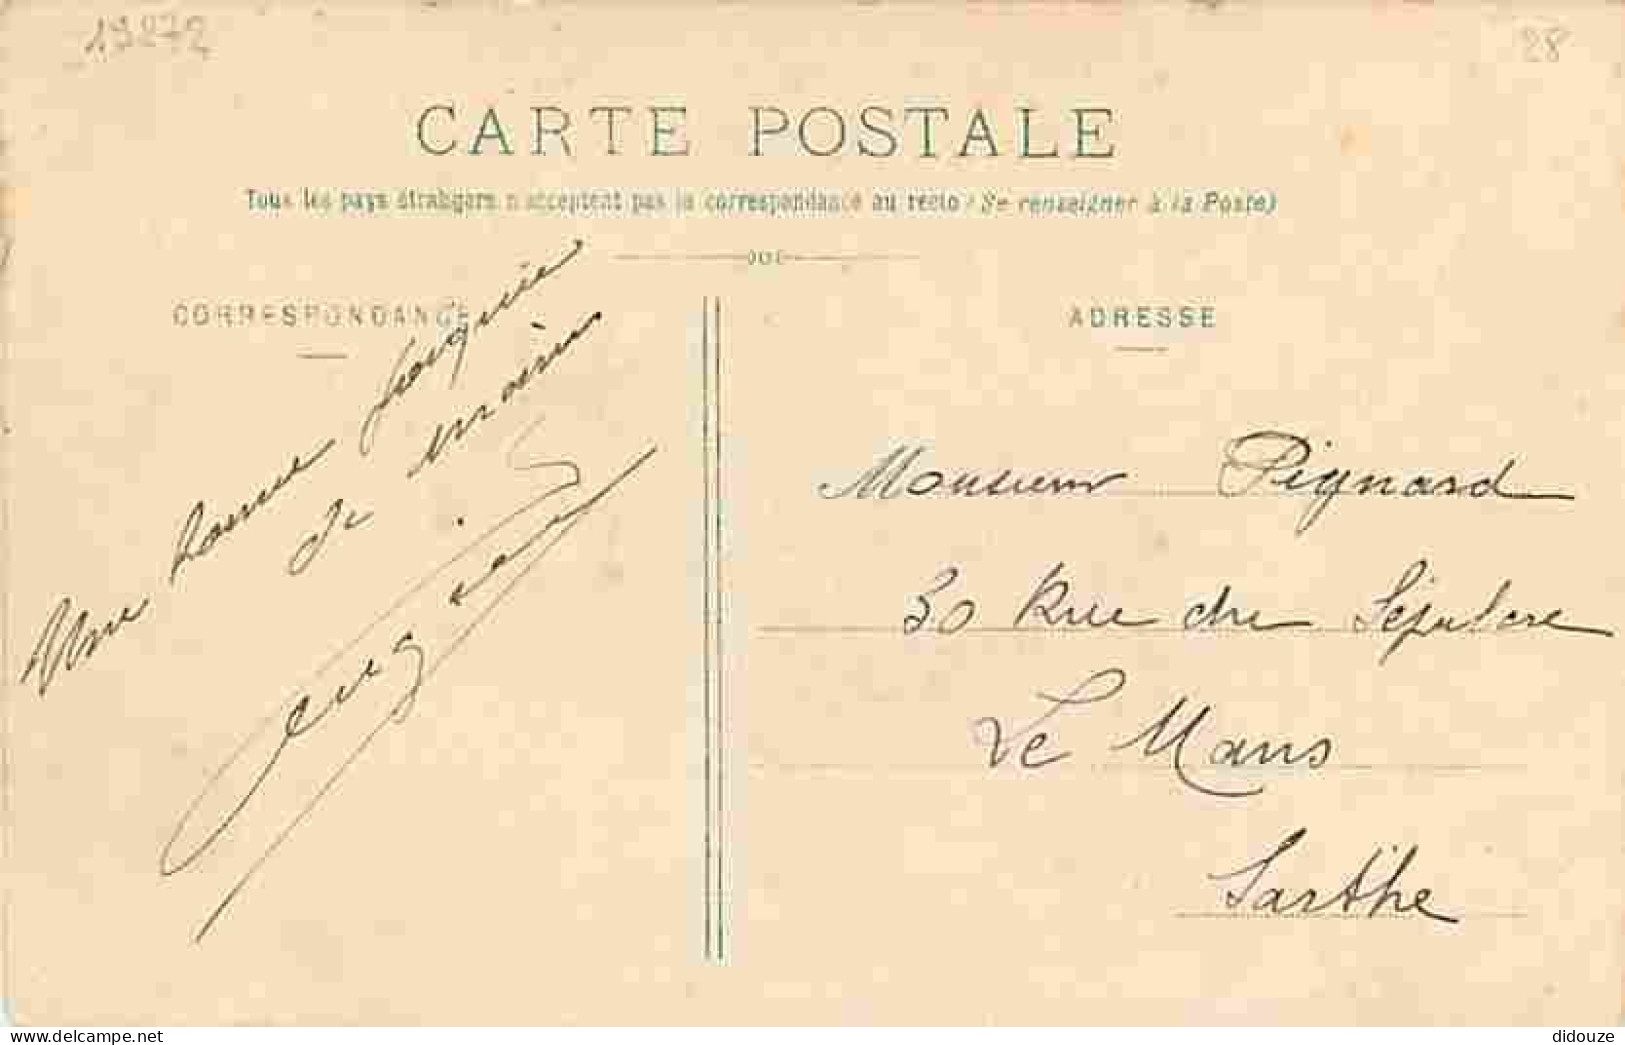 19272
28
CARTE POSTALE
Tous les pays étrangers n'acceptent pas la correspondance au recto (Se renseigner à la Poste)
CORRESPONDANCE
ADRESSE
Une bonne poignée
de mains
Monsieur Pignard
30 Rue du Sépulcre
Le Mans
Sarthe
www.delcampe.net
didouze